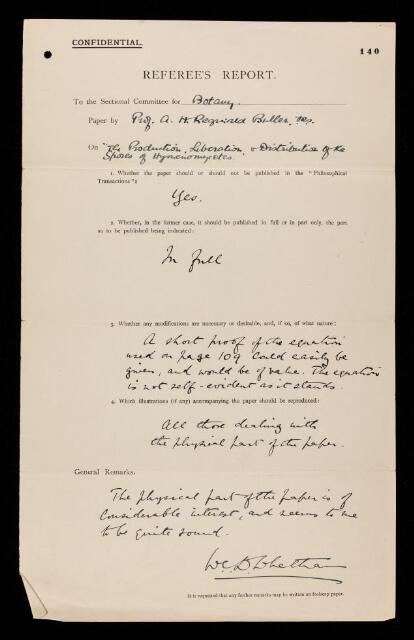 CONFIDENTIAL.
140
REFEREE'S REPORT.
To the Sectional Committee for Botany.
Paper by Prof. A. H. Reginald Buller,
On "The Production, Liberation, & Distribution of the
Spores of Hymenomycetes.
1. Whether the paper should or should not be published in the "Philosophical
Transactions":
Yes.
2. Whether, in the former case, it should be published in full or in part only, the part
so to be published being indicated:
In full
3. Whether any modifications are necessary or desirable, and, if so, of what nature:
A short proof of the equation
used on page 109 could easily be
given, and would be of value. The equation
is not self-evident as it stands.
4. Which illustrations (if any) accompanying the paper should be reproduced:
All those dealing with
the physical part of the paper.
General Remarks.
The physical part of the paper is of
considerable interest, and seems to me
to be quite sound.
W.C.D. Whetham
It is requested that any further remarks may be written on foolscap paper.